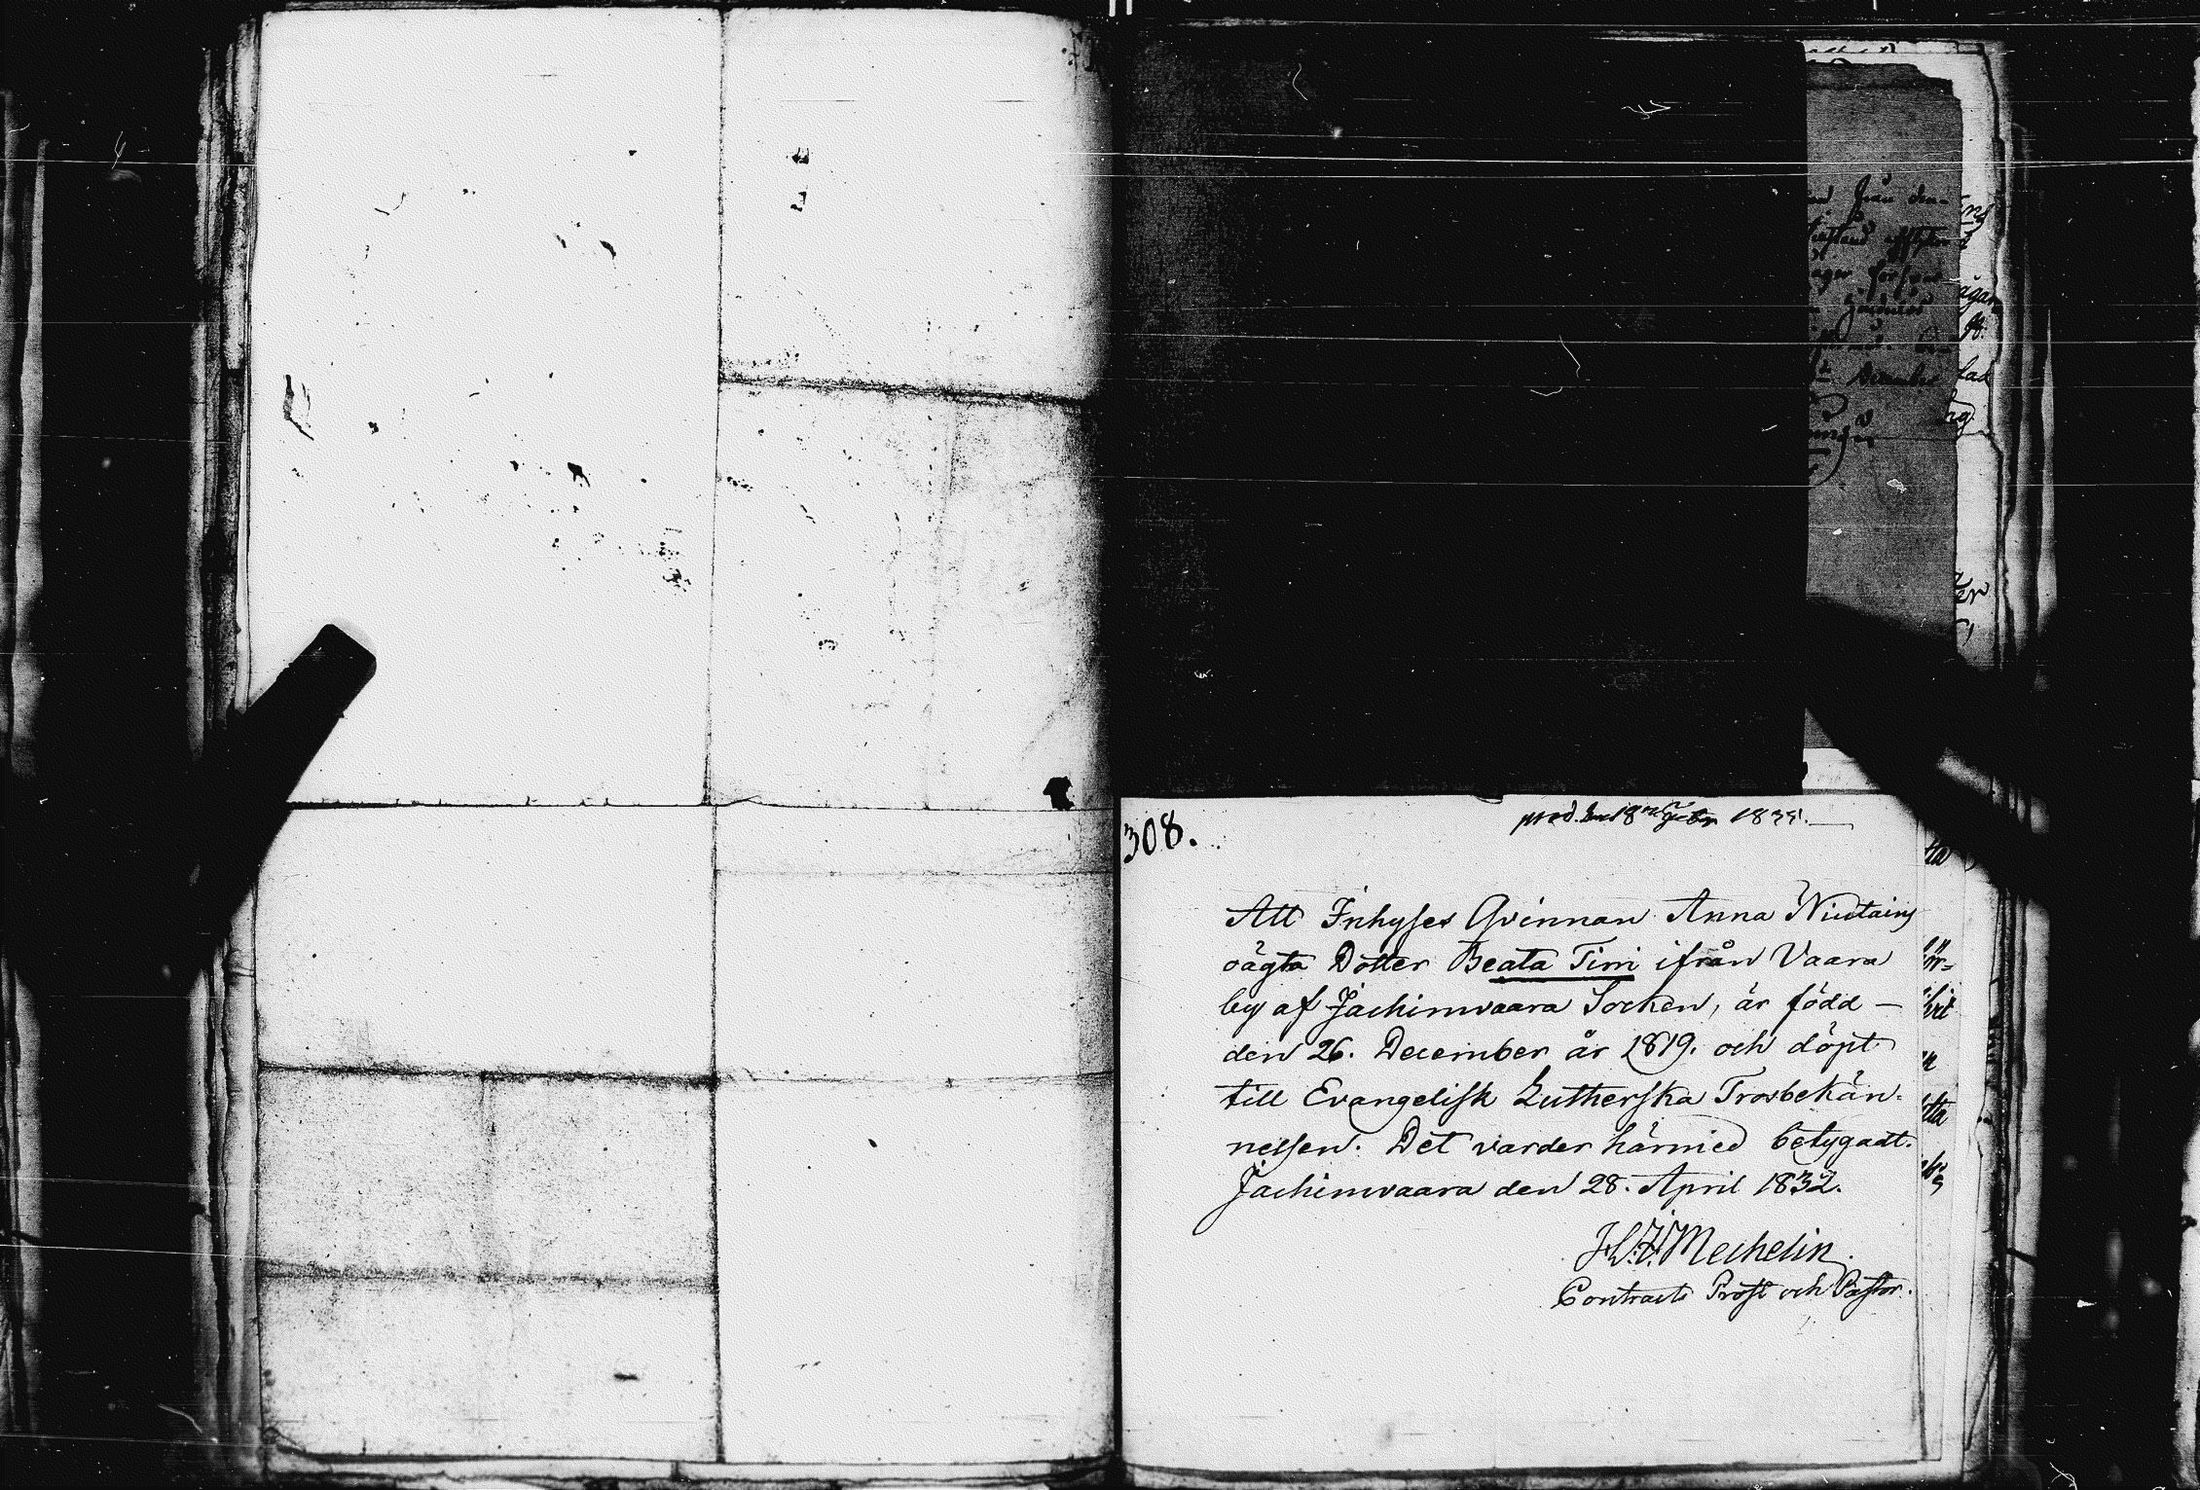 308.
prod. den 18 Febr 183
Att Inhyses Qvinnan Anna Niutains
oägta Dotter Beata Timi ifrån Vaara
by af Jachimvaara Socken, är född –
den 26. December år 1819. och döpt
till Evangelisk Lutherska Trosbekän-
nelsen. Det varder härmed betygadt.
Jachimvaara den 28. April 1832.
H. J. Mechelin.
Contracts Prost och Pastor.
från den-
December